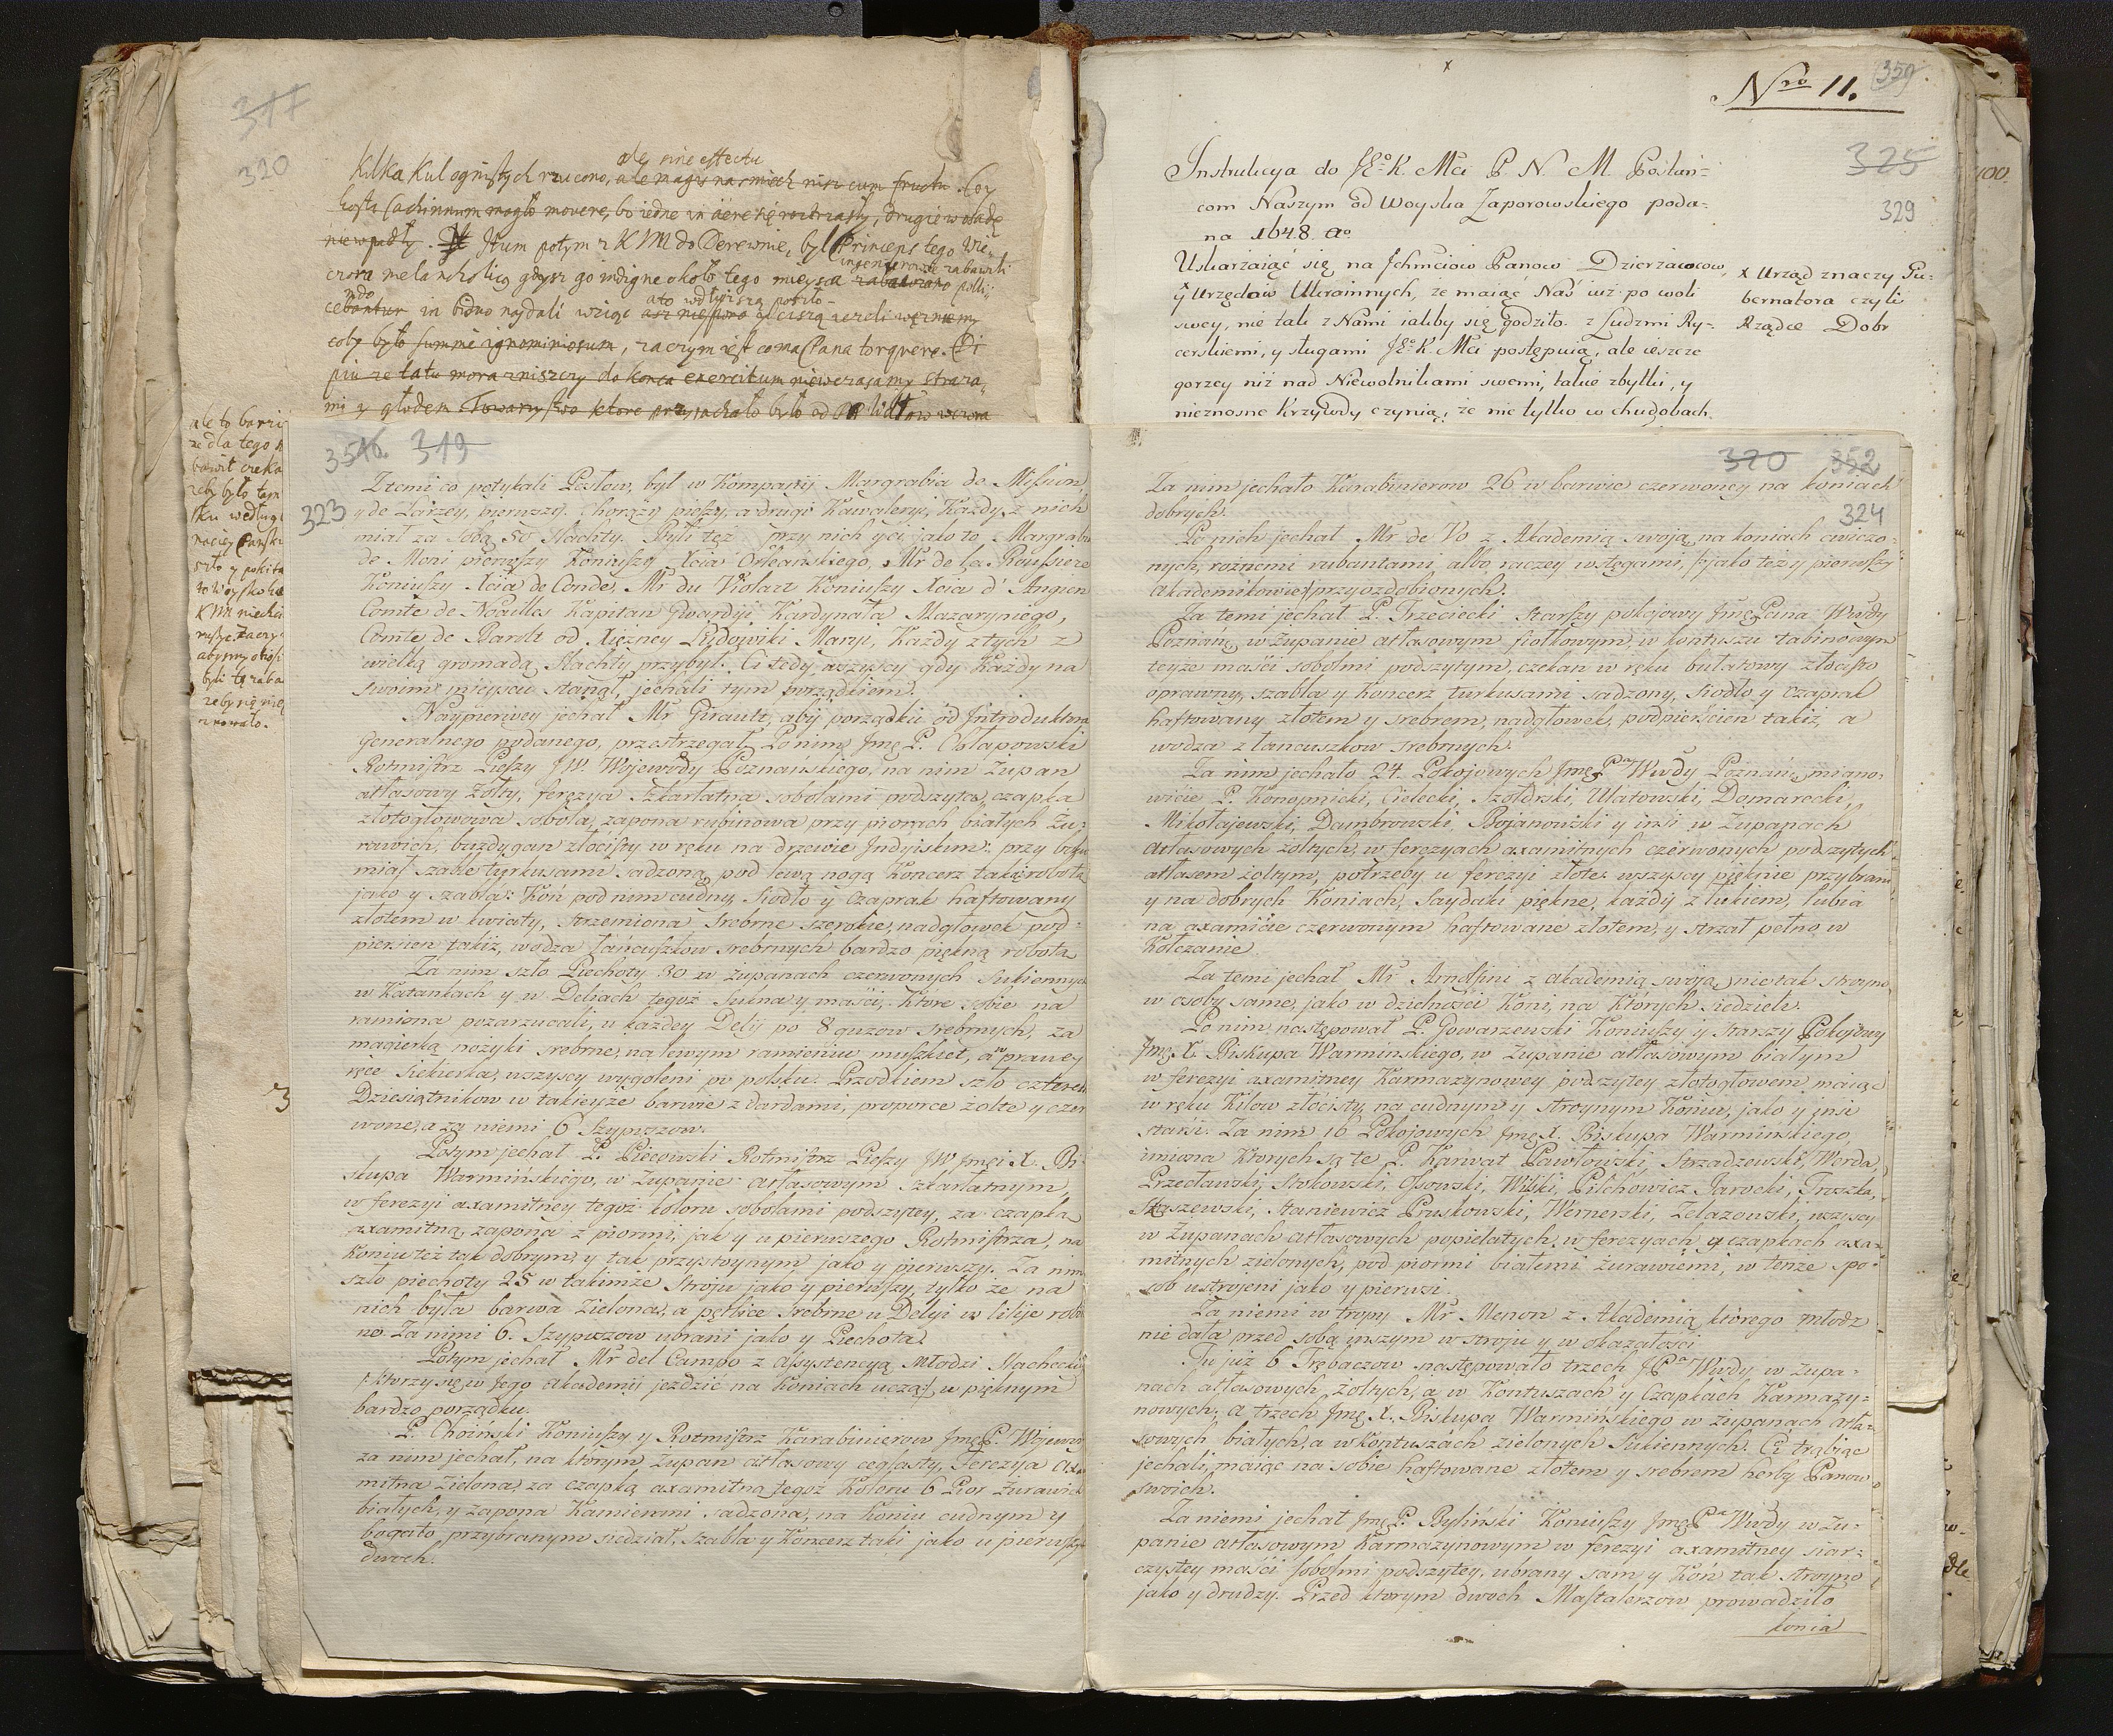 317
320
ale sine effectu
Kilka Kul ognistych rzucono, ale magis na smiech nisi cum fructu. Coy
hosti cachinnum mogło movere, bo iedne in äere się roztrzasły, drugie w wodę
niewpadły. Itum potym z KJM do Derewnie, był Princeps tego Wie-
czora melancholicq gdysz go indigne około tego mieysca
ingenierowie zabawili
in bivio najdali wziąć
coby było summè ignominiosum, zaczym iest co ma Pana torquere.
piu ze ta tu mora zniszczy do konca exercitum niewczasamy strara-
mi y głodem Towarzystwo ktore przyjachało było od
ale to barzi
ze dla tego
bawił czeka
zeby było tam
sku według
naszey Pański
szło y
to woysko
KJM niechci
rusze. Zaczy
abysmy
byli tę zaba
zeby się nie
3
Nro 11.
359
325
329
100
x
Instrukcya do JEo K. Mci P. N. M. Posłań-
com Naszym od Woyska Zaporowskiego poda-
na 1648 ao
Uskarzaiąc się na Jchmciow Panow Dzierzawcow,
y Urzędow Ukrainnych, ze maiąc Naś iuż po woli
swey, nie tak z Nami iakby się godziło z Ludzmi Ry-
cerskiemi, y sługami JEo K. Mci postępuią, ale ieszcze
gorzey niż nad Niewolnikami swemi, takie zbytki, y
nieznosne Krzywdy czynią, że nie tylko w chudobach
x Urząd znaczy Gu-
bernatora czyli
Rządce Dobr
3516 319
323
Ztemi co potykali Posłow, był w Kompanij Margrabia de Misivin,
y de Larzey, pierwszy Chorąży pieszy, a drugi Kawaleryi, Każdy z nich
miał za sobą 50 Slachty. Byli też przy nich yci jako to Margrabia
de Moni pierwszy Koniuszy Xcia Orleańskiego, Mr de la Roussiere
Koniuszy Xcia de Conde, Mr du Violart Koniuszy Xcia d'Angien
Comte de Noailles Kapitan Gwardyi Kardynała Mazaryniego,
Comte de Barolt od Xiężney Ludowiki Maryi, Każdy z tych z
wielką gromadą Slachty przybył. Ci tedy wszyscy gdy Każdy na
swoim mieyscu stanął, jechali tym porządkiem.
Naypierwey jechał Mr Girault, aby porządku od Introduktora
Generalnego podanego, przestrzegał. Po nim Jmę P. Chłapowski
Rotmistrz Pieszy JW. Wojewody Poznańskiego, na nim Zupan
atłasowy Zołty, ferezya szkarłatna sobolami podszyta, czapka
złotogłowowa sobola, zapona rubinowa przy piorach białych Zu-
rawich, buzdygan złocisty w ręku na drzewie Indyiskim: przy boku
miał szable turkusami sadzoną, pod lewą nogą Koncerz takiąrobotą
jako y szabla: Koń pod nim cudny, Siodło y Czaprak haftowany
złotem w kwiaty, strzemiona srebrne szerokie, nadgłowek pod-
piersien takiż, wodza łańcuszkow srebrnych bardzo piękną robotą
Za nim szło Piechoty 30 w żupanach czerwonych Sukiennych
w Katankach y w Deliach tegoż Sukna y maści, Które sobie na
ramiona pozarzucali, u każdey Delij po 8 guzow srebrnych, za
magierką nożyki srebrne, na lewym ramieniu muszkiet, a w prawey
ręce siekierka, wszyscy wygoleni po polsku. Przodkiem szło czterech
Dziesiątnikow w takieyze barwie z dardami, proporce żołte y czer
wone, a za niemi 6 Szypuszow.
Potym jechał P. Piecowski Rotmistrz Pieszy JW Jmci X. Bi-
skupa Warmińskiego, w Zupanie atłasowym szkarłatnym,
w ferezyi axamitney tegoż koloru sobolami podszytey, za czapką
axamitną zapona z piormi, jak y u pierwszego Rotmistrza, na
Koniu też tak dobrym, y tak przystoynym jako y pierwszy. Za nim
szło piechoty 25 w takimże Stroju jako y pierwszy, tylko że na
nich była barwa zielona, a pętlice srebrne u Delyi w lilije robio
ne. Za nimi 6. Szypuszow ubrani jako y Piechota.
Potym jechał Mr del Campo z Assystencyą Młodzi Slacheckiey
/: ktorzy się w Jego Akademii jeździć na Koniach uczą :/ w pięknym
bardzo porządku.
P. Choiński Koniuszy y Rotmistrz Karabinierow JmęP. Wojewody
za nim jechał, na ktorym Zupan atłasowy ceglasty, Ferezya axa
mitna Zielona, za czapką axamitną tegoż Koloru 6 Pior Zurawich
białych, y Zapona Kamieniami sadzona, na Koniu cudnym y
bogato przybranym siedział, Szabla y Koncerz taki jako u pierwszych
dwoch.
320 352
324
Za nim jechało Karabinierow 26 w barwie czerwoney na koniach
dobrych.
Po nich jechał Mr de Vo z Akademią swoją na koniach cwiczo-
nych, roznemi rubantami, albo raczey wstęgami, /:jako też y pierwszy
akademikowie:/ przyozdobionych.
Za temi jechał P. Trzeciecki Starszy pokojowy Jmę Pana Wwdy
Poznań: w Zupanie atłasowym fiołkowym, w kontuszu tabinowym
teyże maści sobolmi podszytym, czekan w ręku bułatowy złocisto
oprawny, szabla y Koncerz turkusami sadzony, Siodło y Czaprak
haftowany złotem y srebrem, nadgłowek, podpierścien takiż, a
wodza z łancuszkow srebrnych.
Za nim jechało 24. Pokojowych Jmę Pa Wwdy Poznań: miano-
wicie P. Konopnicki, Cielecki, Szołdrski, Ulatowski, Domarecki,
Mikołajewski, Dambrowski, Bojanowski y insi w Zupanach
atłasowych żołtych, w ferezyach axamitnych czerwonych podszytych
atłasem żołtym, potrzeby u ferezyi złote: wszyscy pięknie przybrani
y na dobrych Koniach, Saydaki piękne, każdy z łukiem, łubia
na axamicie czerwonym haftowane złotem, y strzał pełno w
Kołczanie.
Za temi jechał Mr Arnolfini z akademią swoją, nie tak stroyno
w osoby same, jako w dzielności Koni, na Których siedzieli.
Po nim następował P. Gowarzewski Koniuszy y Starszy Pokojowy
Jmę X. Biskupa Warminskiego, w Zupanie atłasowym białym
w ferezyi axamitney Karmazynowey podszytey złotogłowem maiąc
w ręku Kilow złocisty, na cudnym y stroynym Koniu, jako y insi
starsi. Za nim 16 Pokojowych Jmę X. Biskupa Warmińskiego,
imiona Ktorych są te P. Karwat Pawłowski, Strzadzewski, Werda,
Przecławski, Stokowski, Ossowski, Wilski, Pilchowicz Jarocki, Troszka,
Staszewski, Staniewicz Pruskowski, Wernerski, Zelazowski, wszyscy
w Zupanach atłasowych popielatych, w ferezyach y czapkach axa-
mitnych zielonych, pod piormi białemi żurawiemi, w tenże spo-
sob ustrojeni jako y pierwsi.
Za niemi w tropy Mr Menon z Akademią, którego młodz
nie dała przed sobą inszym w stroju y w okazałości.
Tu już 6 Trębaczow następowało trzech JPa Wwdy w Zupa-
nach atłasowych żołtych, a w Kontuszach y Czapkach Karmazy-
nowych; a trzech Jmę X. Biskupa Warmińskiego w żupanach atła-
sowych białych, a w Kontuszach zielonych Sukiennych. Ci trąbiąc
jechali, maiąc na sobie haftowane złotem y srebrem herby Panow
swoich.
Za niemi jechał JmęP. Byliński Koniuszy JmęPa Wwdy w Zu-
panie atłasowym Karmazynowym w ferezyi axamitney siar-
czystey maści sobolmi podszytey, ubrany sam y Koń tak stroyno
jako y drudzy. Przed ktorym dwoch Masztalerzow prowadziło
konia